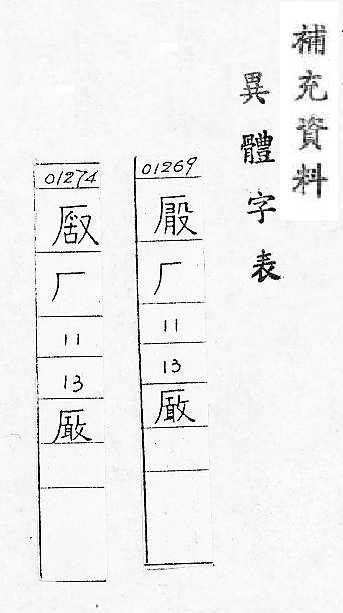 補充資料
異體字表
01269
厂
11
13
01274
厂
11
13